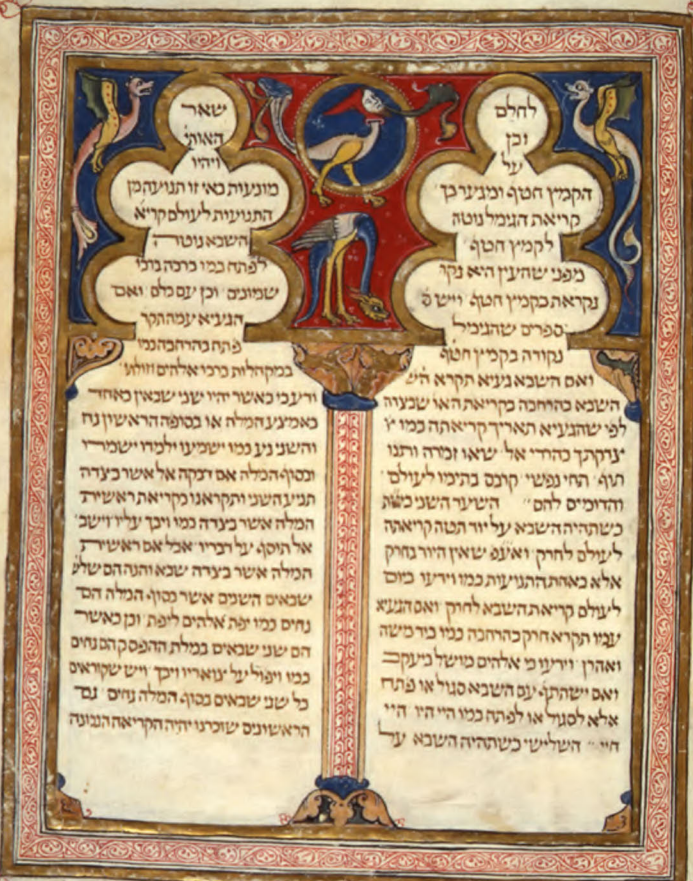 לחלם
וכן
על
הקמיץ חטף
קריאת הגימל נוטה
לקמיץ חטף
מפני שהעין היא נקו
נקראת בקמיץ חטף ויש ס
ספרים שהגימל
נקודה בקמיץ חטף
ואם השבא געיא תקרא הש
השבא בהרחבה בקריאת האו שבצוה
לפי שהגעיא תאריך קריאתה כמו צ
צדקתך כהררי אל שאו זמרה ותנו
תוף תחי נפשי לעולם
והדומים להם השער השני כשת
כשתהיה השבא על יוד תטה קריאתה
לעולם לחרק ואעפ שאין היוד נחרק
אלא באחת התנועות כמו וידעו ביום
לעולם קריאת השבא לחרק ואם הגעיא
עמו תקרא חרק בהרחבה כמו ביד משה
ואהרן וידעו כי אלהים מושל ביעקב
ואם ישתתף עם השבא סגול או פתח
אלא לסגול או לפתח כמו היי היו היי
חיי השלישי כשתהיה השבא על
שאר
האותי
ויהיו
מונעות באי זו תנועה מן
התנועות לעולם קריא
השבא נוטה
לפתח כמו ברכה
שמונים וכן עם כלם ואם
הגעיא עמה תקר
פתח בהרחבה כמו
במקהלות ברכו אלהים
ודע כי כאשר יהיו שני שבאין כאחד
באמצע המלה או בסופה הראשון נח
והשני נע כמו ישמעו ילמדו ישמרו
ובסוף המלה אם דבקה אל אשר בצדה
תניע השני ותקראנו כקריאת ראשית
המלה אשר בצדה כמו ויבך עליו וישב
אל תוסף על דבריו אבל אם ראשית
המלה אשר בצדה שבא והנה הם שלש
שבאים השנים אשר בסוף המלה הם
נחים כמו יפת אלהים ליפת וכן כאשר
הם שני שבאים במלת ההפסק הם נחים
כמו ויפול על צואריו ויבך ויש שקוראים
כל שני שבאים בסוף המלה נחים גם
הראשונים שזכרנו יהיה הקריאה הנכונה